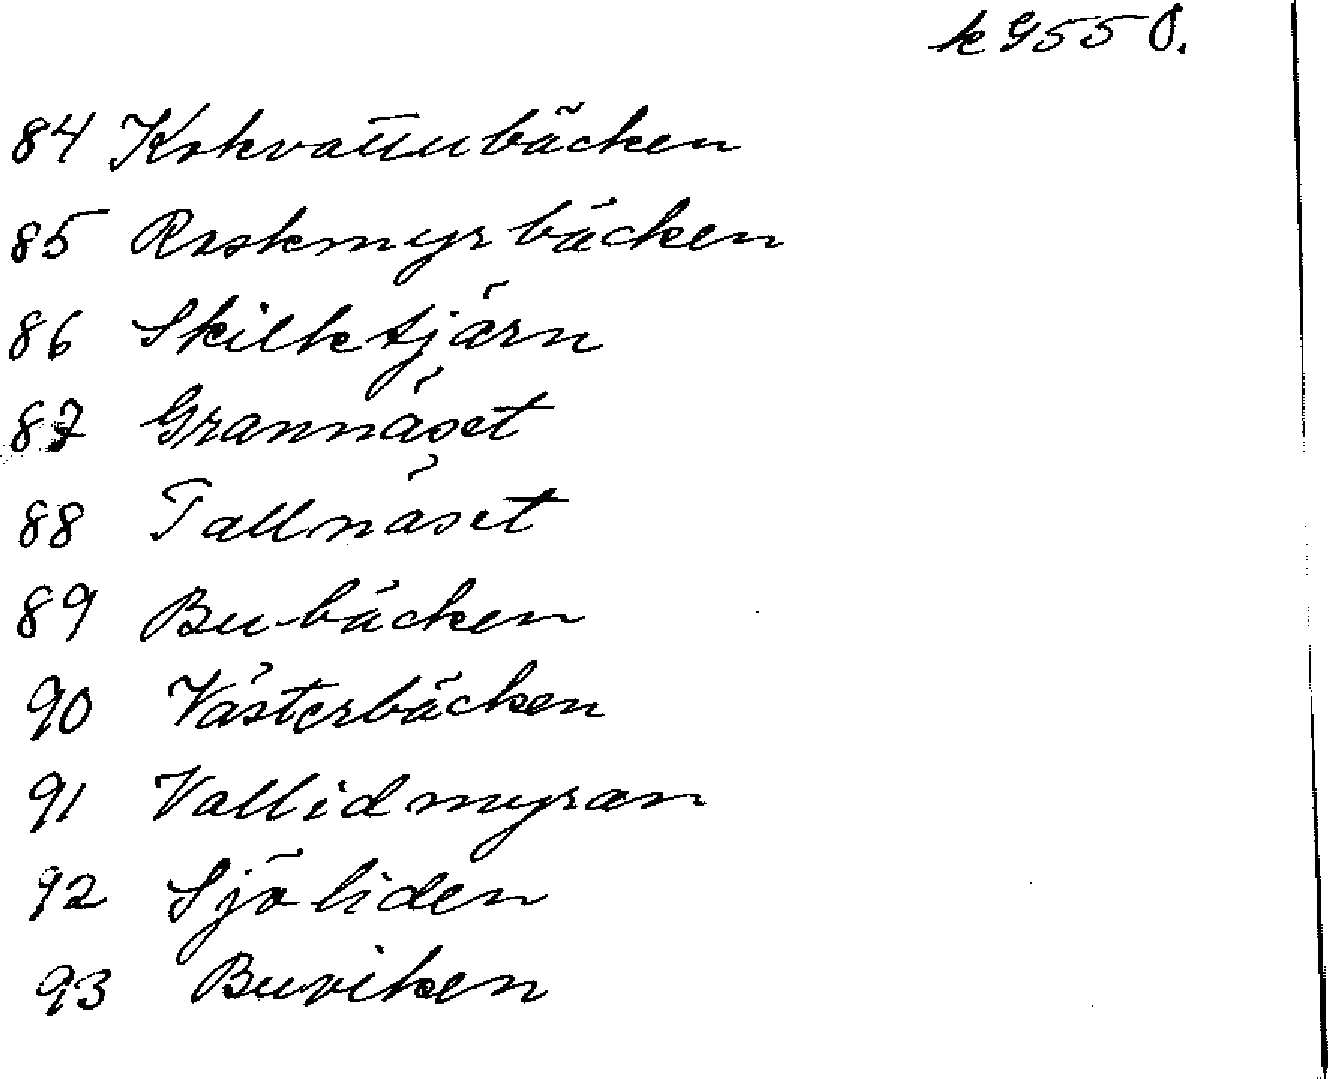 k 9550.
84 Kokvattubäcken
85 Roskmyrbäcken
86 Skilktjärn
87 Grannäset
88 Tallnäset
89 Bubäcken
90 Västerbäcken
91 Vallidmyran
92 Sjöliden
93 Buviken